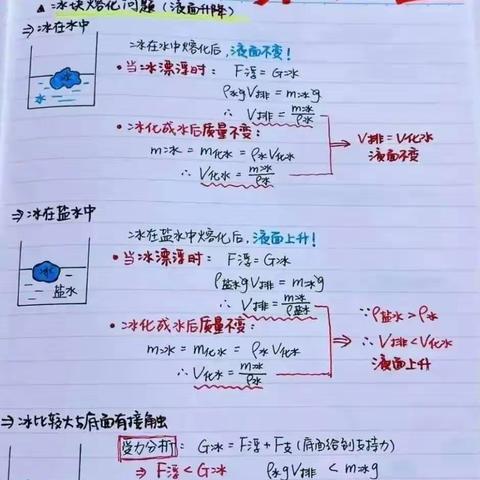 ▲ 冰块熔化问题(液面升降)
⇒冰在水中
冰在水中熔化后,液面不变!
冰
水
•当冰漂浮时: F浮=G冰
ρ水gV排 = m冰g
∴ V排=m冰/ρ水
•冰化成水后质量不变:
m冰 = m化水 = ρ水V化水
∴ V化水=m冰/ρ水
V排=V化水
液面不变
⇒冰在盐水中
冰在盐水中熔化后,液面上升!
冰
盐水
•当冰漂浮时: F浮=G冰
ρ盐水gV排=m冰g
∴ V排=m冰/ρ盐水
•冰化成水后质量不变:
m冰 = m化水 = ρ水V化水
∴ V化水=m冰/ρ水
∵ρ盐水>ρ水
∴ V排<V化水
液面上升
⇒冰比较大与底面有接触
受力分析: G冰=F浮+F支(底面给的支持力)
⇒ F浮<G冰 ρ水gV排 < m冰g